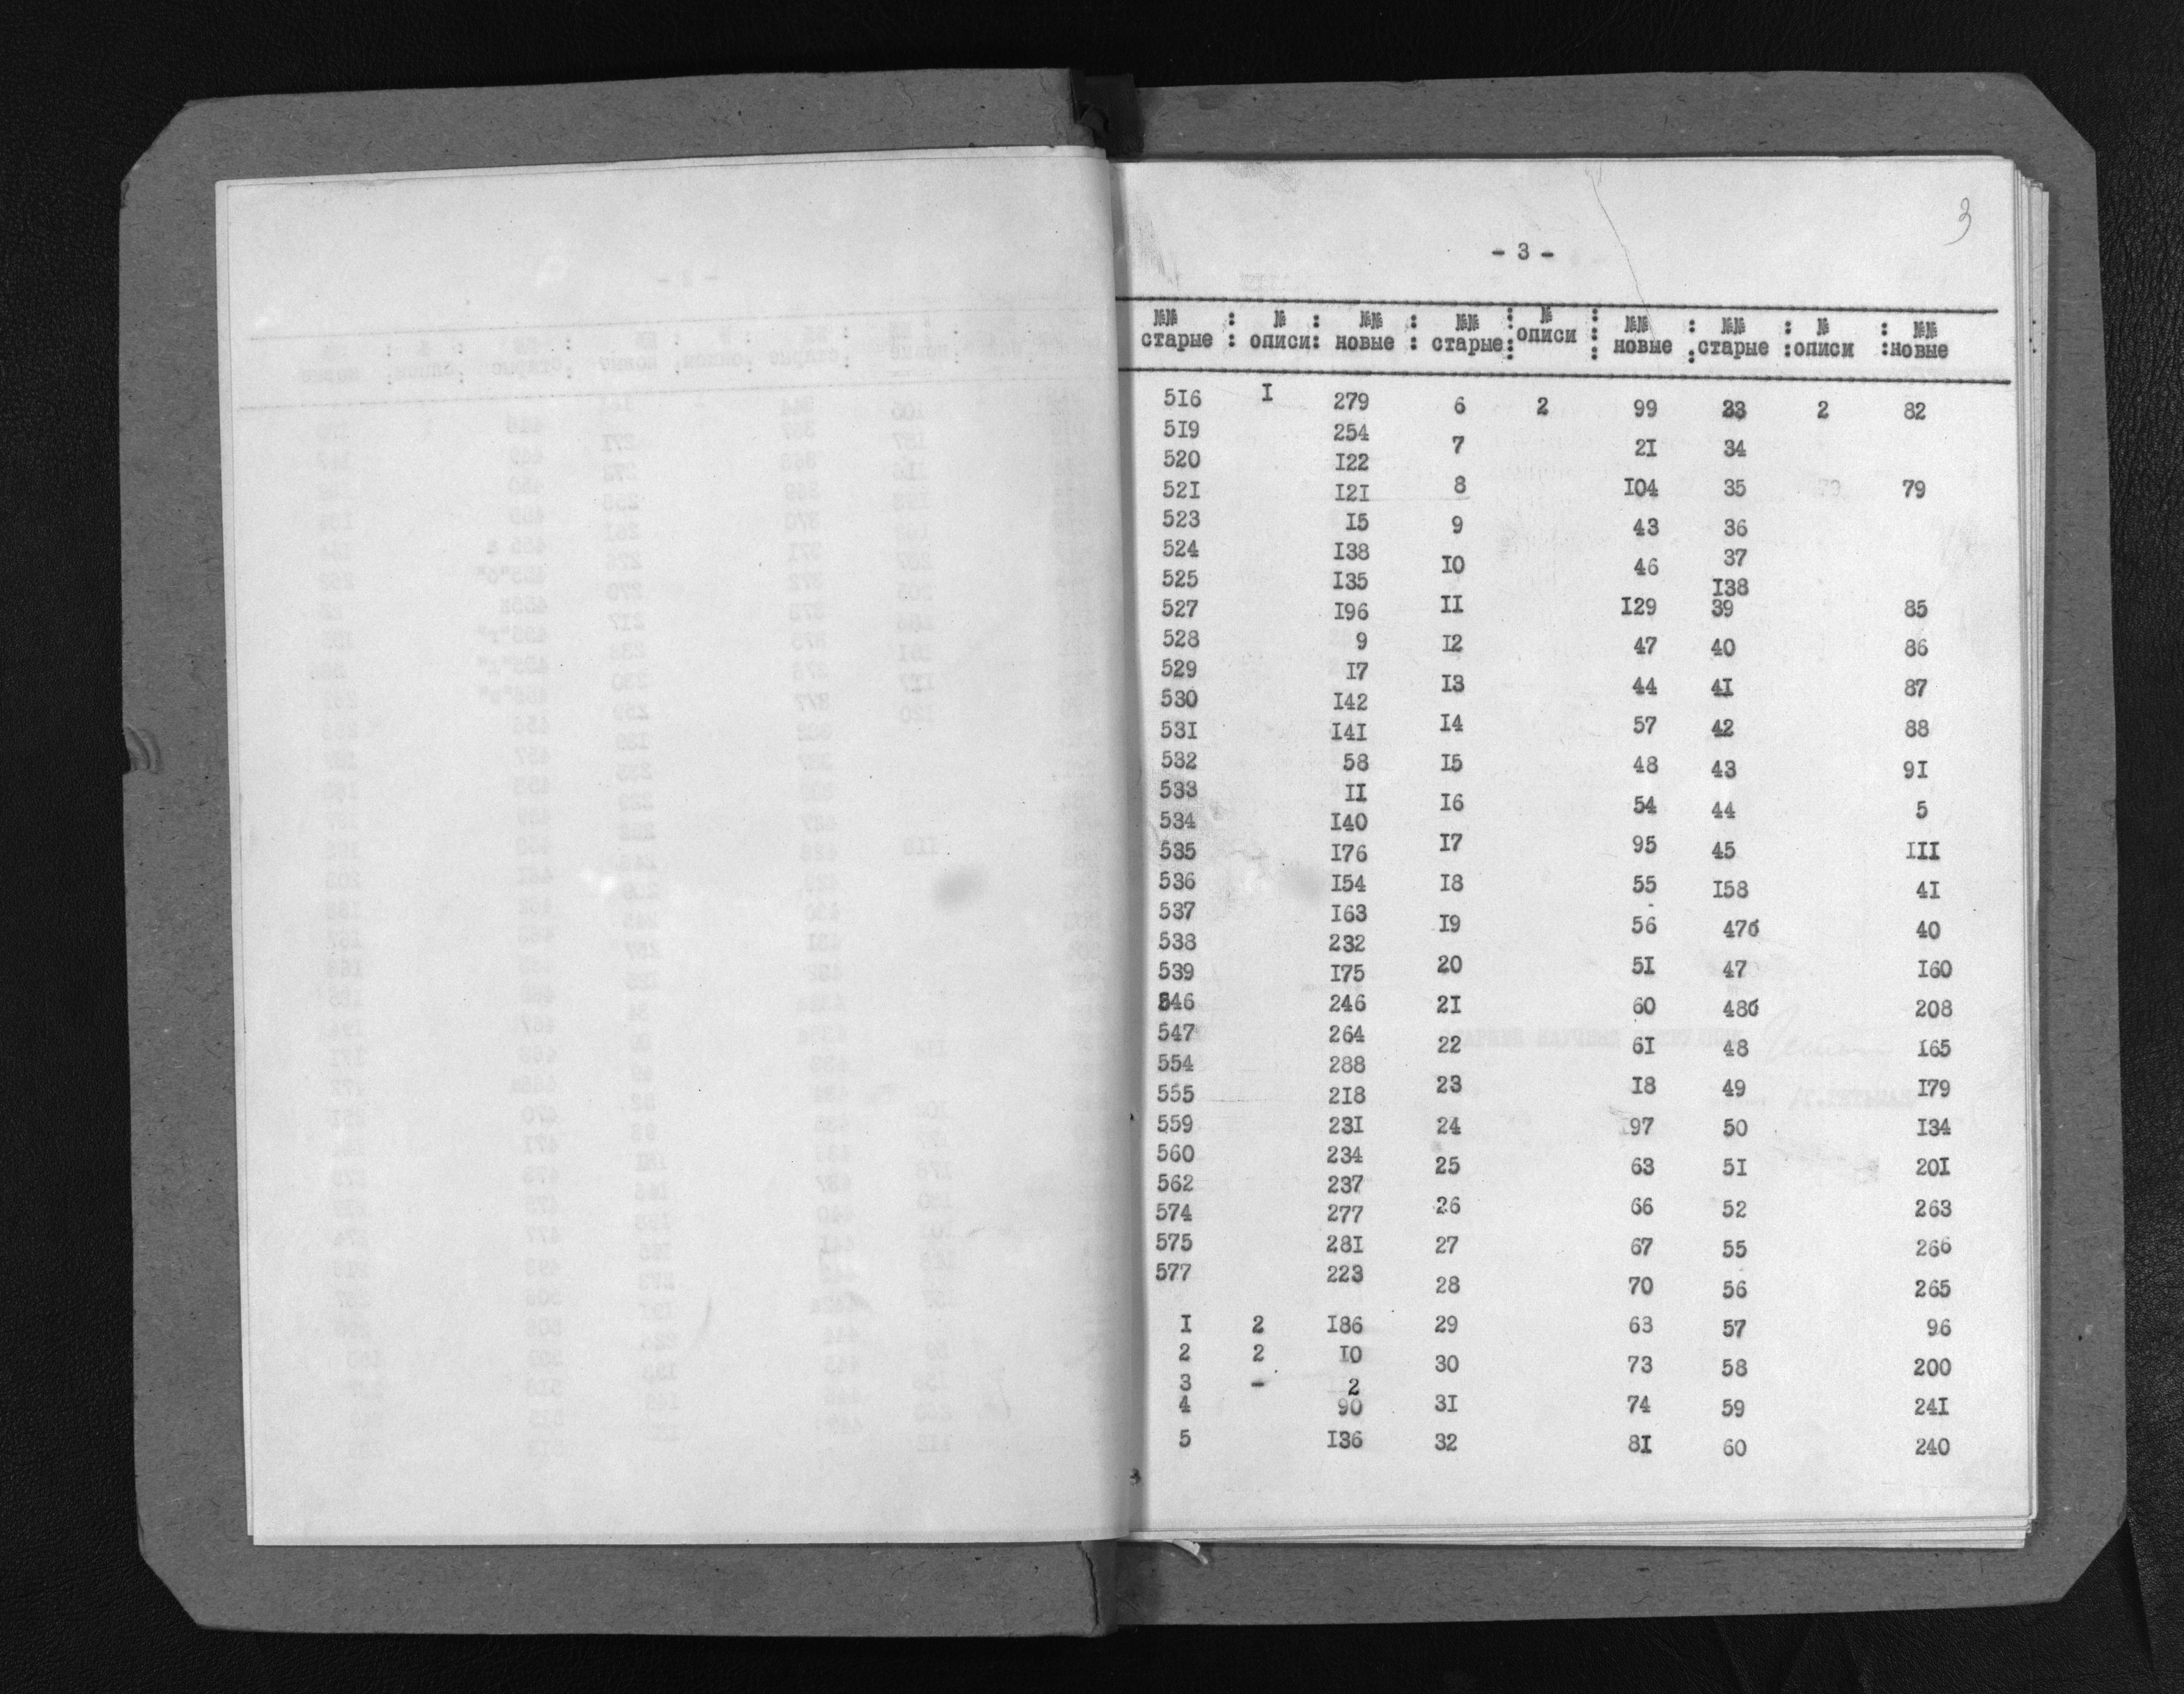 3
- 3 -
№№ : № : №№ : №№ : № : №№ : №№ : № : №№
старые : описи: новые : старые: описи : новые :старые :описи :новые
516 I 279 6 2 99 33 2 82
519 254 7 2I 34
520 I22 8 I04 35 79
52I I2I 9 43 36
523 I5 I0 46 37
524 I38 II I29 I38
525 I35 I2 47 39 85
527 I96 I3 44 40 86
528 9 I4 57 4I 87
529 I7 I5 48 42 88
530 I42 I6 54 43 9I
53I I4I I7 95 44 5
532 58 I8 55 45 III
533 II I9 56 I58 4I
534 I40 20 5I 47б 40
535 I76 2I 60 47 I60
536 I54 22 6I 48б 208
537 I63 23 I8 48 I65
538 232 24 97 49 I79
539 I75 25 63 50 I34
546 246 26 66 5I 20I
547 264 27 67 52 263
554 288 28 70 55 266
555 218 29 68 56 265
559 23I 30 73 57 96
560 234 3I 74 58 200
562 237 32 8I 59 24I
574 277 60 240
575 28I
577 223
I 2 I86
2 2 I0
3 - 2
4 90
5 I36